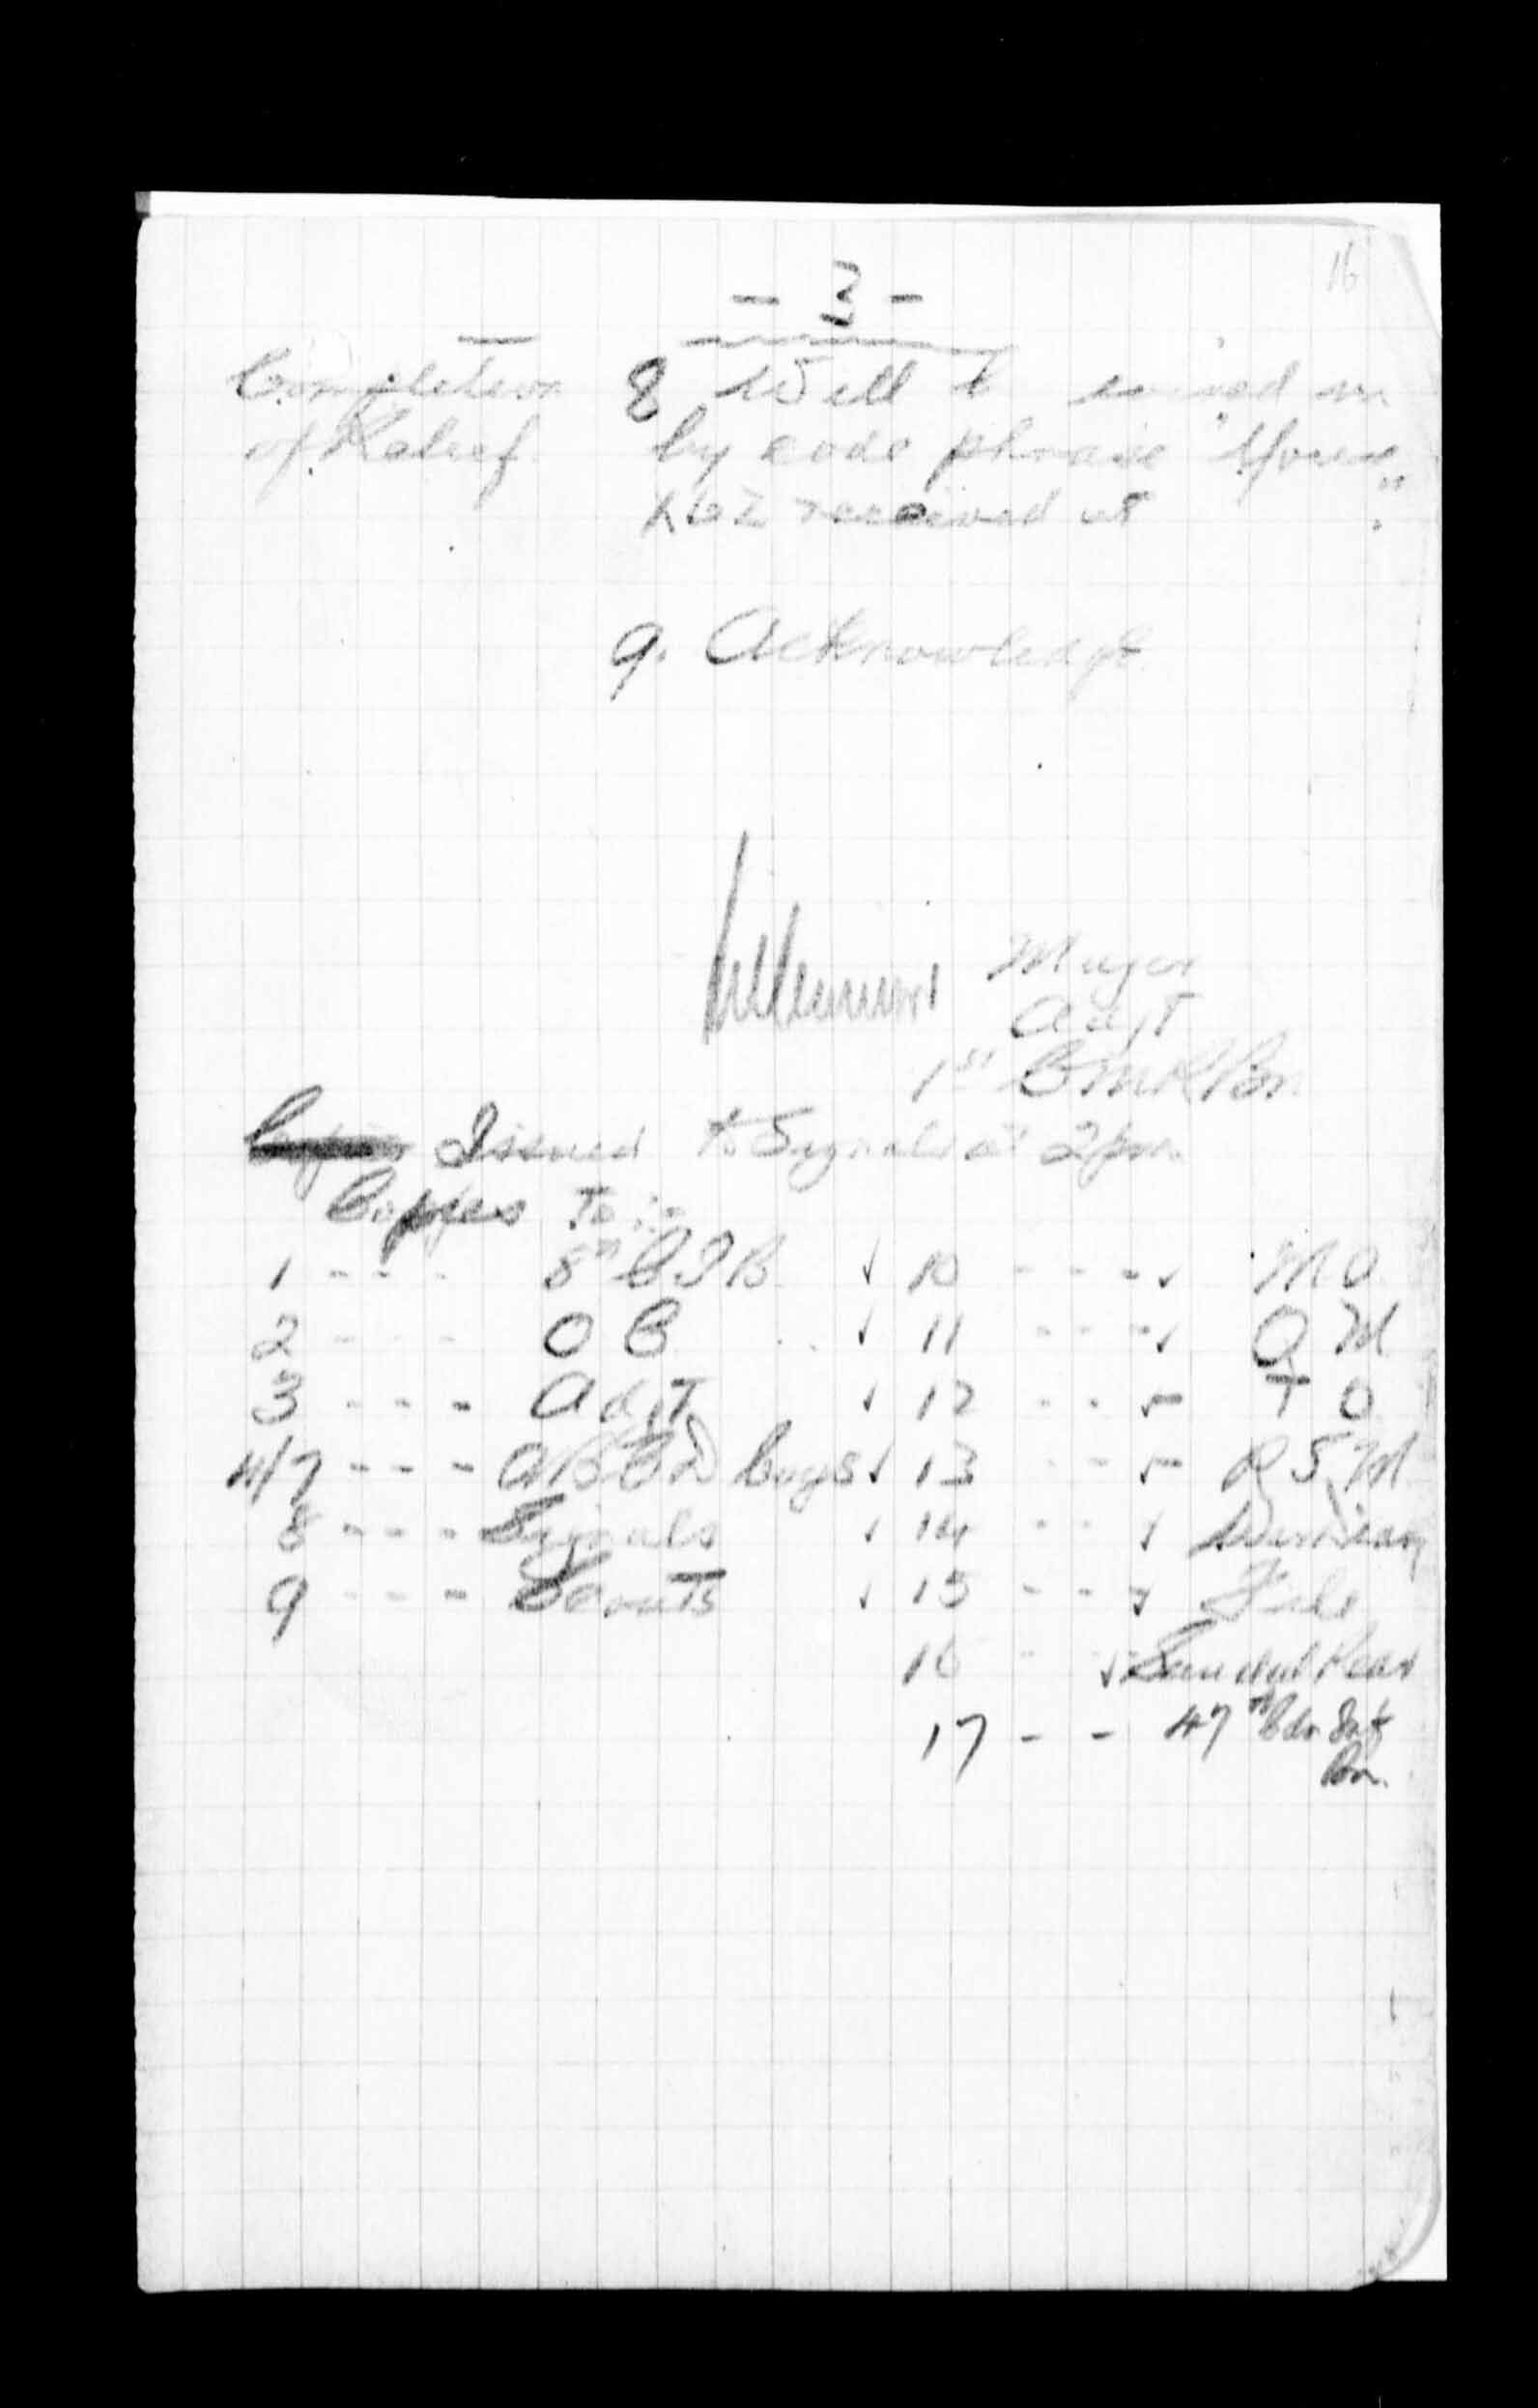 16
- 3 -
Completion 8 Will be wired in
of Relief. by code phrase "Your
X62 received at ".
9. Acknowledge.
Major
Adjt
1st CMR Bn.
Issued to Signals at 2 pm.
Copies To:-
1 - - - 8th CIB ✓ 10 - - - ✓ MO
2 - - - O C ✓ 11 - - - ✓ Q M
3 - - - Adjt ✓ 12 - - ✓ T O
4/7 - - - A B C D Coys ✓ 13 - - ✓ R S M
8 - - - Signals ✓ 14 - - ✓ War Diary
9 - - - Scouts ✓ 15 - - ✓ File
16 - ✓ Rear
17 - - 47th Cdn Inf
Bn.